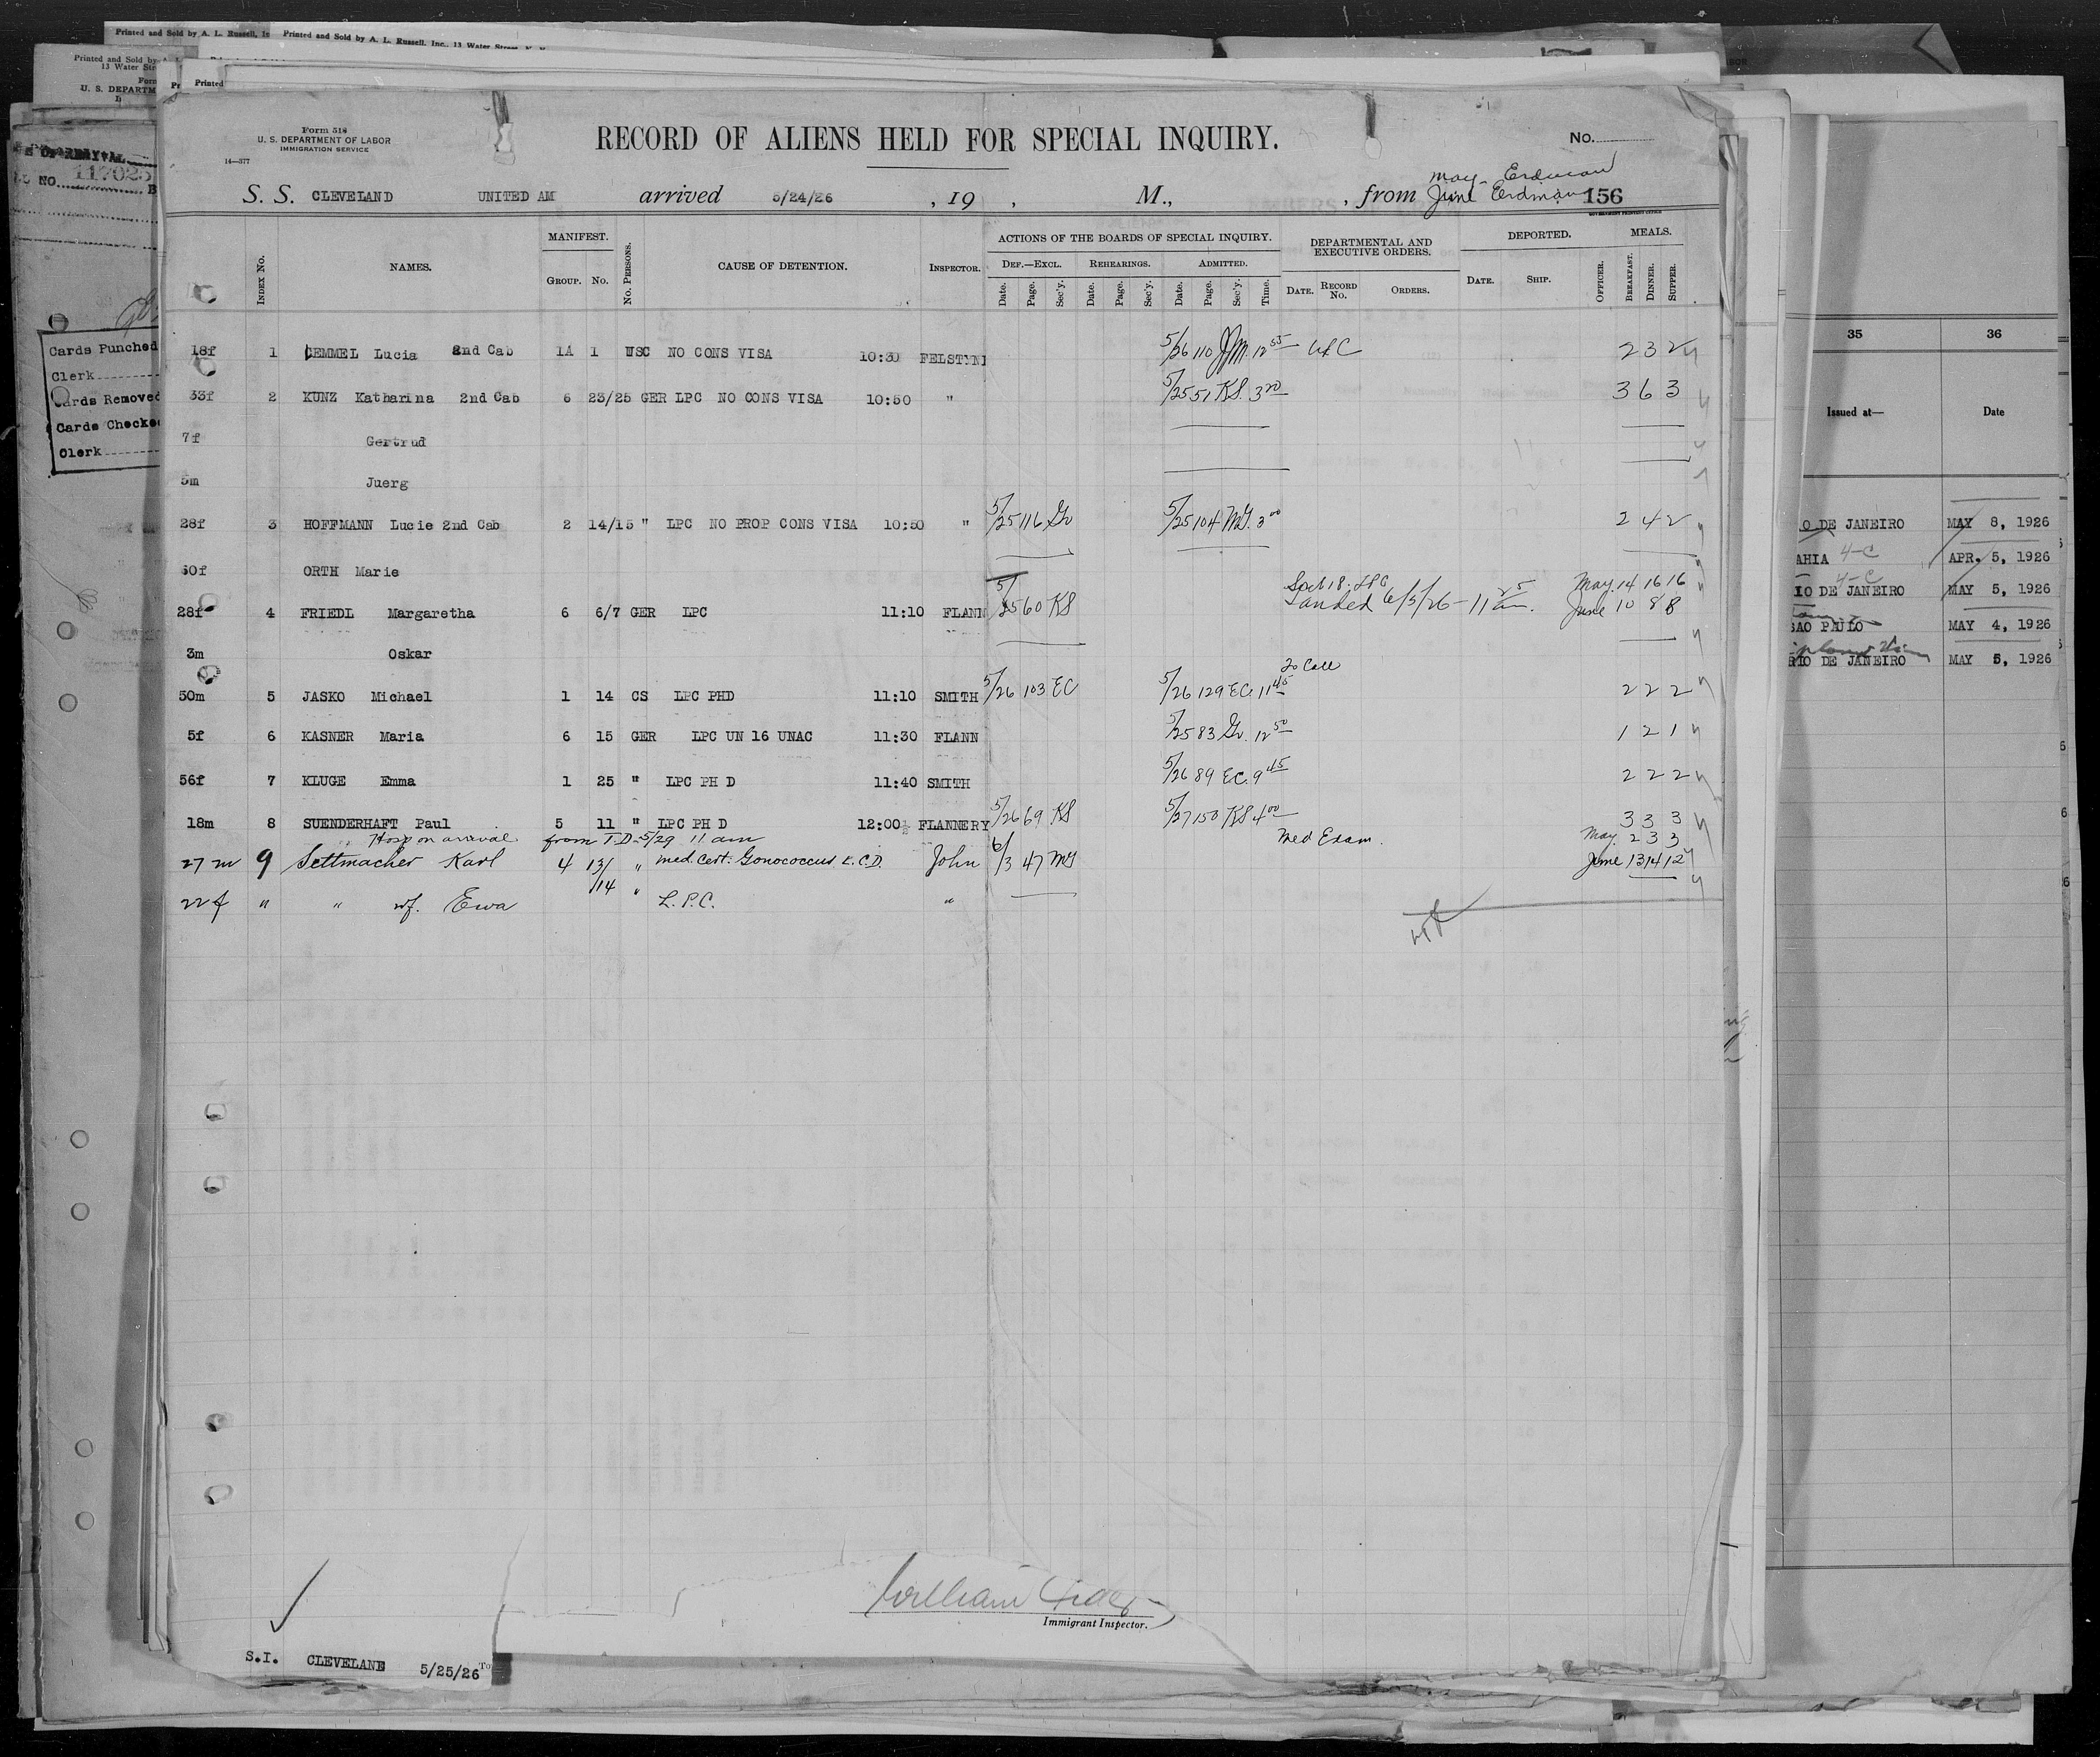 Printed and Sold by A. L. Russell, Printed and Sold by A. L. Russell, Inc., 13 Water Street, N. Y.
Printed and Sold by
13 Water
Form
U. S. DEPARTM
Printed
NO. 117025
Cards Punched
Clerk
Cards Removed
Cards Checked
Clerk
Form 518
U. S. DEPARTMENT OF LABOR
IMMIGRATION SERVICE
14—377
RECORD OF ALIENS HELD FOR SPECIAL INQUIRY.
No.
May - Erdman
S. S. CLEVELAND UNITED AM arrived 5/24/26 , 19 , M., , from June Erdman 156
INDEX No. NAMES. MANIFEST. GROUP. No. No. PERSONS. CAUSE OF DETENTION. INSPECTOR. ACTIONS OF THE BOARDS OF SPECIAL INQUIRY. DEF.—EXCL. Date. Page. Sec'y. REHEARINGS. Date. Page. Sec'y. ADMITTED. Date. Page. Sec'y. Time. DEPARTMENTAL AND EXECUTIVE ORDERS. DATE. RECORD No. ORDERS. DEPORTED. DATE. SHIP. OFFICER. MEALS. BREAKFAST. DINNER. SUPPER.
18f 1 GEMMEL Lucia 2nd Cab 1A 1 USC NO CONS VISA 10:30 FELSTYNE 5/26 110 JM. 12 55 USC 2 3 2
33f 2 KUNZ Katharina 2nd Cab 6 23/25 GER LPC NO CONS VISA 10:50 " 5/25 51 KS. 3 20 3 6 3
7f Gertrud
5m Juerg
28f 3 HOFFMANN Lucie 2nd Cab 2 14/15 " LPC NO PROP CONS VISA 10:50 " 5/25 116 Gv 5/25 104 MG. 3 00 2 4 2
60f ORTH Marie
Sect 18. LPC May 14 16 16
28f 4 FRIEDL Margaretha 6 6/7 GER LPC 11:10 FLANN 5/25 60 KS Landed 6/5/26 - 11 25 am. June 10 8 8
3m Oskar
To Call
50m 5 JASKO Michael 1 14 CS LPC PHD 11:10 SMITH 5/26 103 EC 5/26 129 EC. 11 45 2 2 2
5f 6 KASNER Maria 6 15 GER LPC UN 16 UNAC 11:30 FLANN 5/25 83 Gv. 12 50 1 2 1
56f 7 KLUGE Emma 1 25 " LPC PH D 11:40 SMITH 5/26 89 EC. 9 45 2 2 2
18m 8 SUENDERHAFT Paul 5 11 " LPC PH D 12:00 FLANNERY 5/26 69 KS 5/27 150 KS 4 00 3 3 3
Hosp on arrival. from T.D. 5/29 11 am Med Exam. May. 2 3 3
27 m 9 Settmacher Karl 4 13/14 " med. Cert. Gonococcus L.C.D. John 6/3 47 MG June 13 14 12
22 f " " wf. Ewa " L.P.C. "
William
Immigrant Inspector.
S.I. CLEVELAND 5/25/26
35 36
Issued at— Date
O DE JANEIRO MAY 8, 1926
AHIA 4-C APR. 5, 1926
4-C
IO DE JANEIRO MAY 5, 1926
SAO PAULO MAY 4, 1926
RIO DE JANEIRO MAY 5, 1926